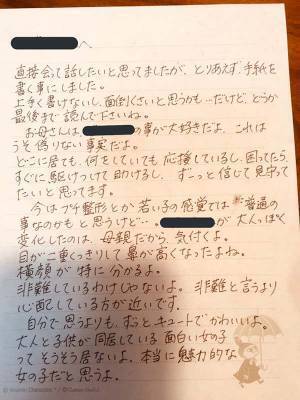 へ
直接会って話したいと思ってましたが、とりあえず、手紙を
書く事にしました。
上手く書けないし、面倒くさいと思うかも…だけど、どうか
最後まで読んで下さいね。
お母さんは、の事が大好きだよ。これは
うそ偽りない事実だよ。
どこに居ても、何をしていても応援しているし、困ってたら
すぐに駆けつけて助けるし、ずーっと信じて見守って
たいと思ってます。
今はプチ整形とか若い子の感覚では普通の
事なのかもと思うけど…。が大人っぽく
変化したのは、母親だから、気付くよ。
目が二重くっきりして鼻が高くなったよね。
横顔が特に分かるよ。
非難しているわけじゃないよ。非難と言うより
心配している方が近いです。
自分で思うよりも、ずっとキュートでかわいいよ。
大人と子供が同居している面白い女の子
ってそうそう居ないよ。本当に魅力的な
女の子だと思うよ。